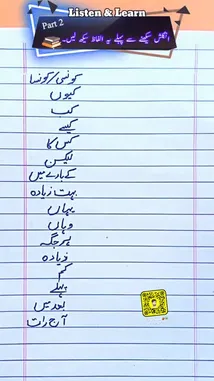 Listen & Learn
Part 2
انگلش سیکھنے سے پہلے یہ الفاظ سیکھ لیں۔
کونسی/کونسا
کیوں
کب
کیسے
کس کا
لیکن
کے بارے میں
بہت زیادہ
یہاں
وہاں
ہر جگہ
زیادہ
کم
پہلے
بعد میں
آج رات